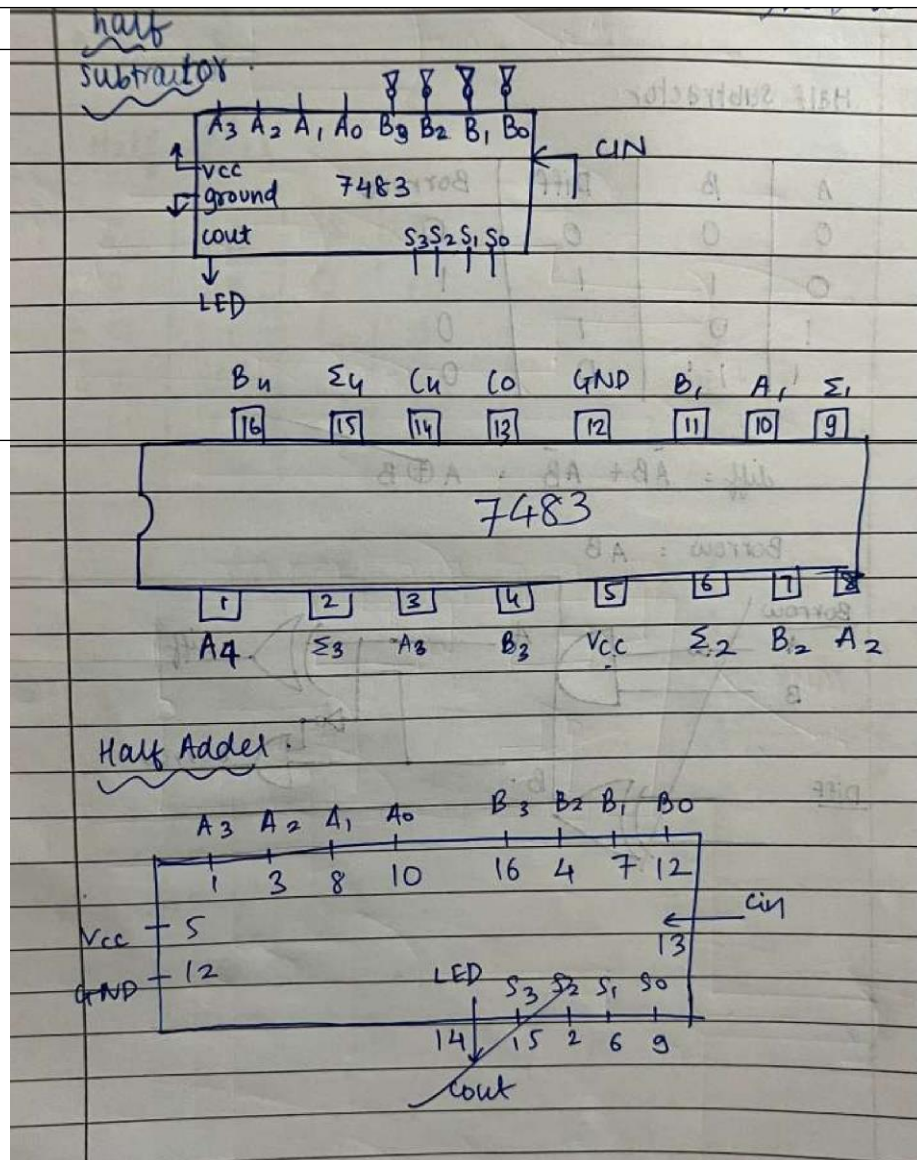 half
subtractor.
A3 A2 A1 A0 B3 B2 B1 B0
CIN
VCC
ground 7483
cout S3 S2 S1 S0
LED
B4 Σ4 C4 C0 GND B1 A1 Σ1
16 15 14 13 12 11 10 9
7483
1 2 3 4 5 6 7 8
A4 Σ3 A3 B3 VCC Σ2 B2 A2
Half Adder.
A3 A2 A1 A0 B3 B2 B1 B0
1 3 8 10 16 4 7 12
Vcc 5 Cin
13
GND 12 LED S3 S2 S1 S0
14 15 2 6 9
Cout